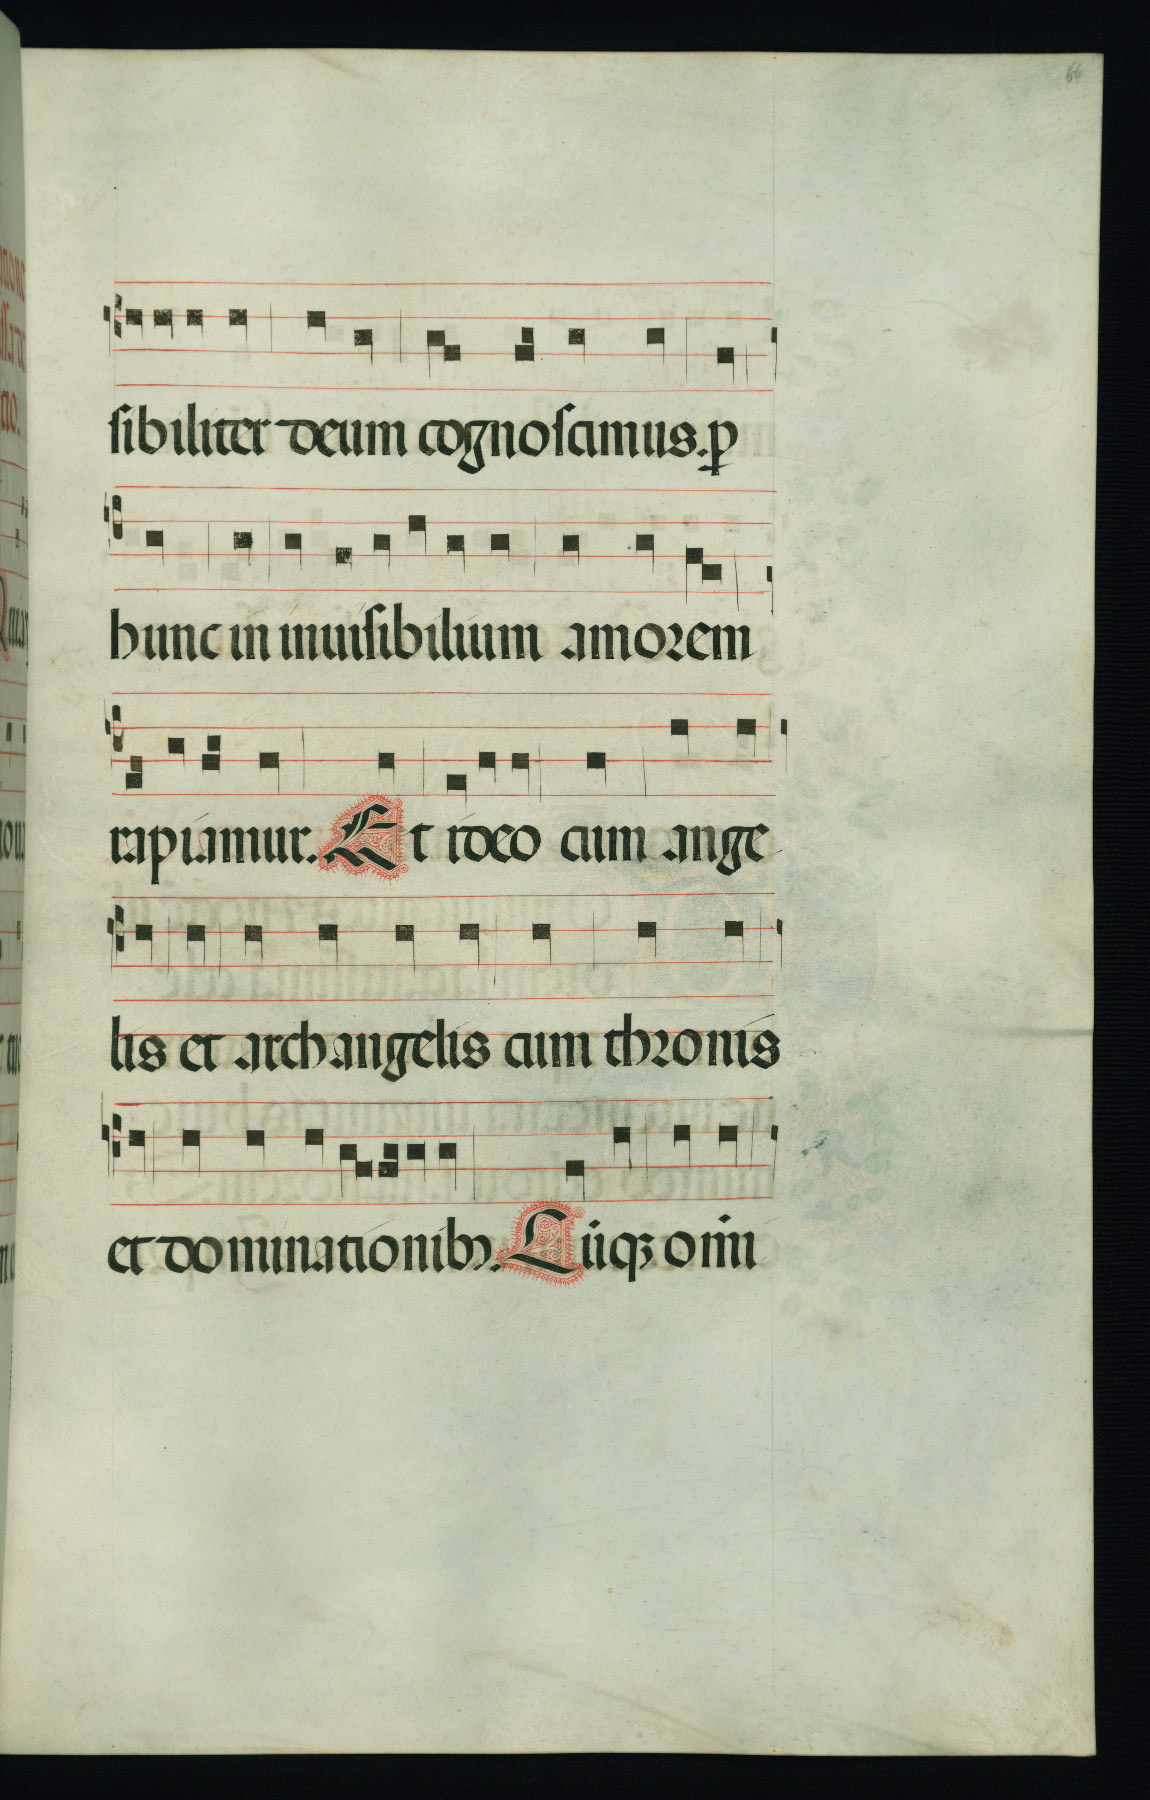 64
sibiliter deum cognoscimus. p
hunc in inuisibilium amorem
rapiamur. Et ideo cum ange
lis et archangelis cum thronis
et dominationibꝫ. Cūqꝫ omni